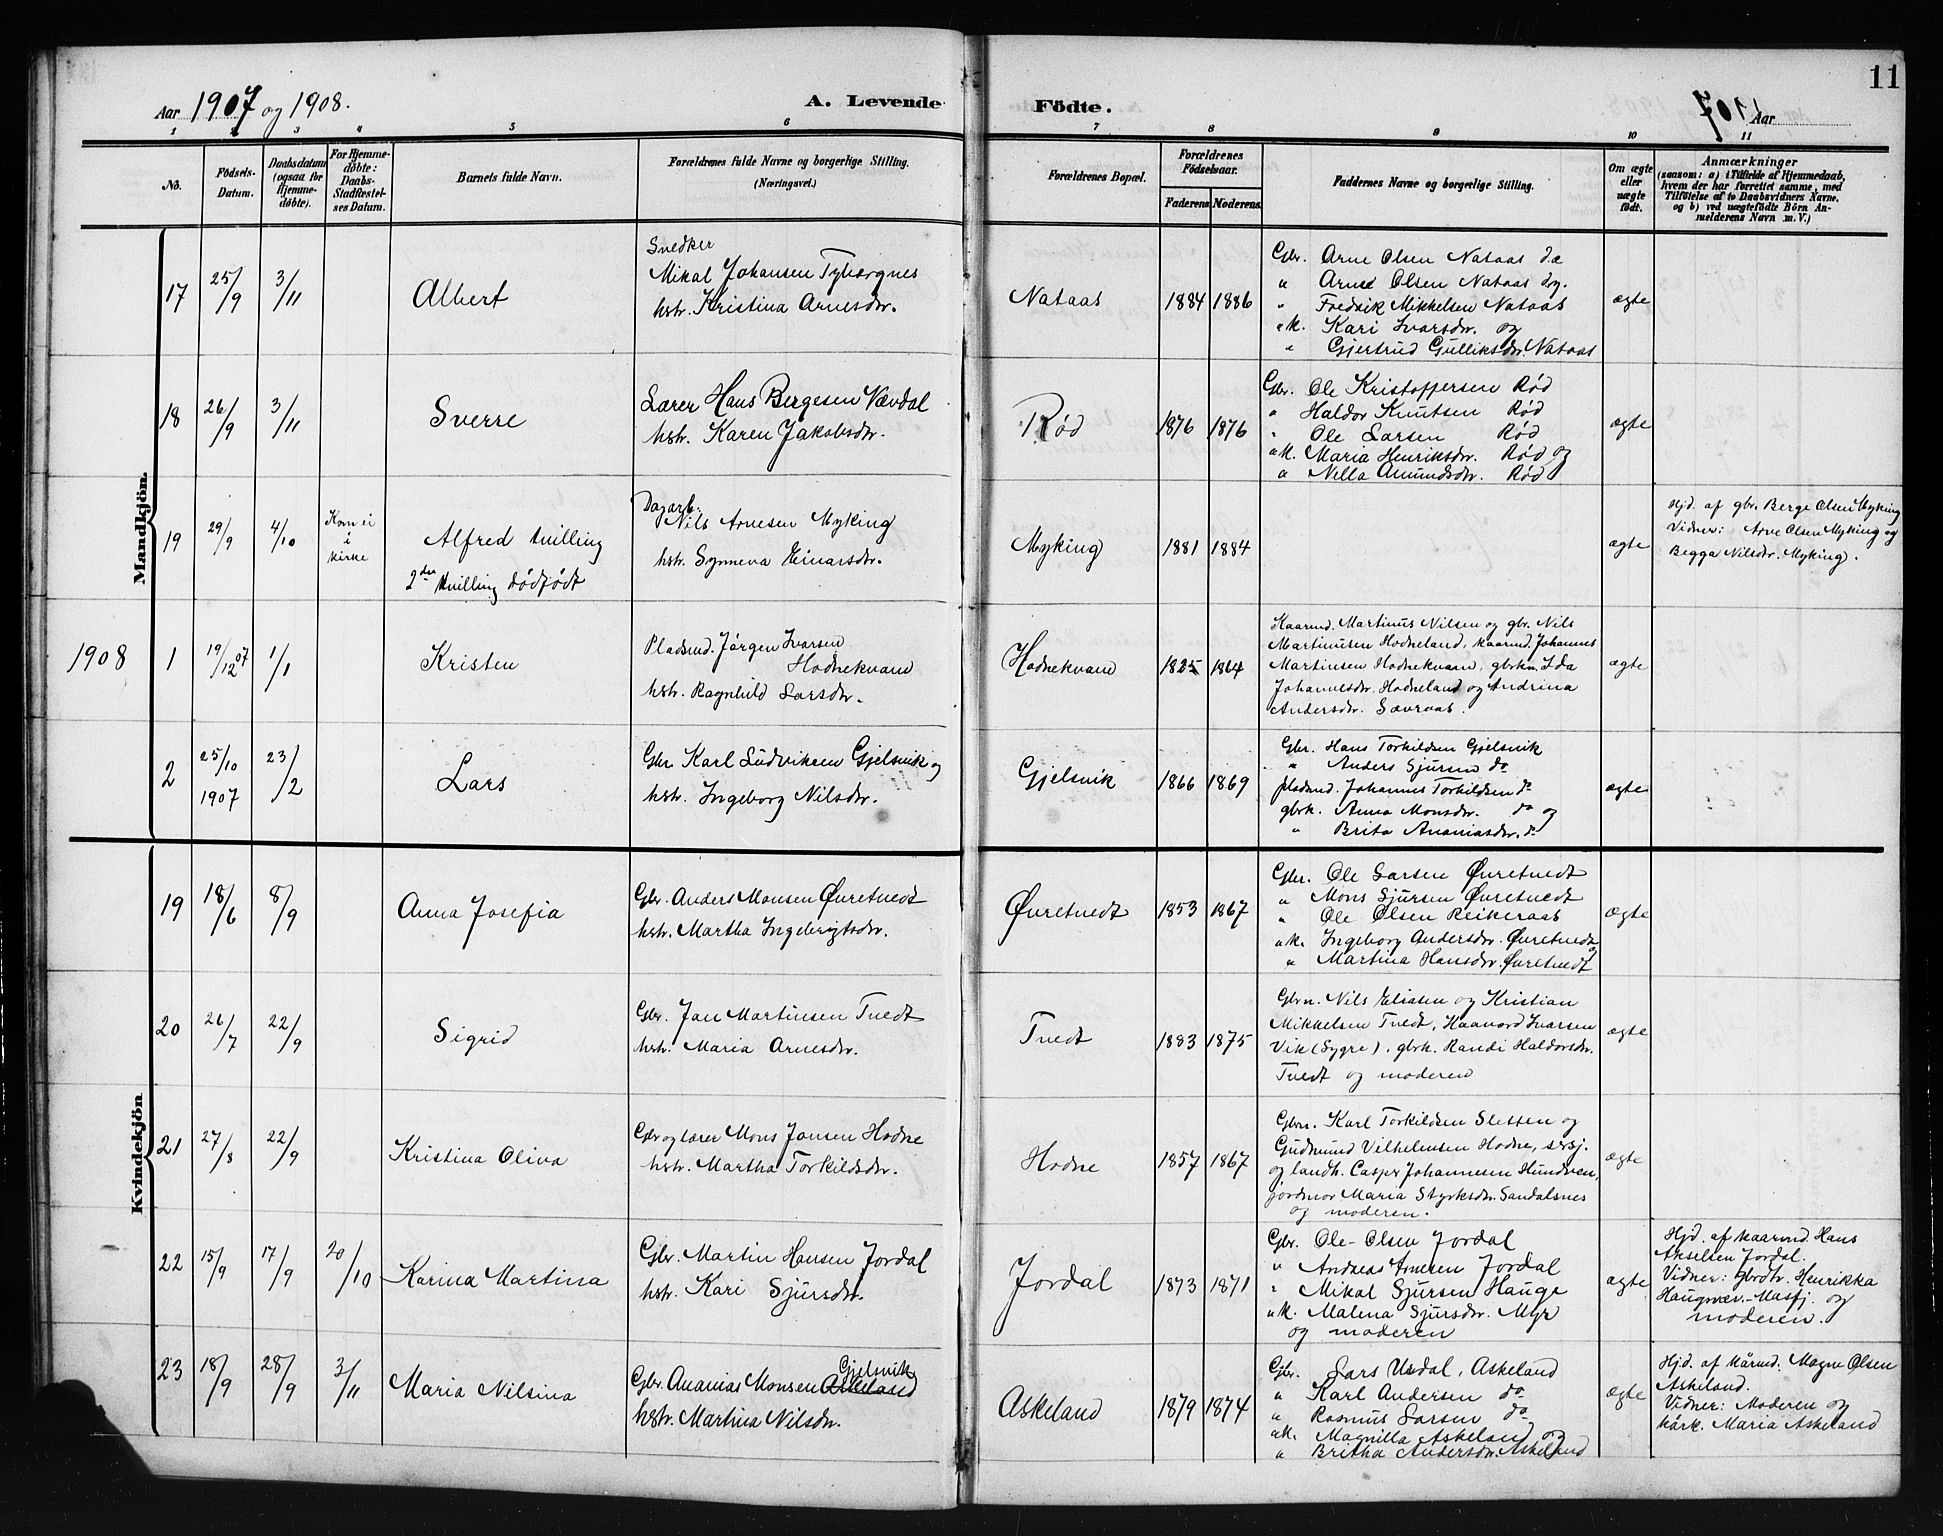 11
Aar 1907 og 1908.
A. Levende
Födte.
1907 Aar
1 2 3 4 5 6 7 8 9 10 11
No.
Födsels-
Datum.
Daabsdatum
(ogsaa for
Hjemme-
döbte).
For Hjemme-
döbte:
Daabs-
Stadfæstel-
ses Datum.
Barnets fulde Navn.
Forældrenes fulde Navne og borgerlige Stilling.
(Næringsvei.)
Forældrenes Bopæl.
Forældrenes
Födselsaar.
Faderens. Moderens.
Faddernes Navne og borgerlige Stilling.
Om ægte
eller
uægte
födt.
Anmærkninger
(saasom: a) i Tilfælde af Hjemmedaab,
hvem der har forrettet samme, med
Tilföielse af to Daabsvidners Navne,
og b) ved uægtefödte Börn An-
melderens Navn m. V.)
Mandkjön.
17 25/9 3/11
Albert
Snedker
Mikal Johansen
hstr. Kristina Arnesdtr.
Nataas
1884 1886
Gbr. Arne Olsen Nataas
" Arne Olsen Nataas
" Fredrik Mikkelsen Nataas
" k. Kari Ivarsdtr. og
" Gjertrud Gulliksdtr. Nataas
ægte
18 26/9 3/11
Sverre
Lærer Hans Bergesen Nævdal
hstr. Karen Jakobsdtr.
Rød
1876 1876
Gbr. Ole Kristoffersen Rød
" Haldor Knutsen Rød
" Ole Larsen Rød
" k. Maria Henriksdtr. Rød og
" Nella Amundsdtr. Rød
ægte
19 29/9 4/10
Kom ei
i
kirke
Alfred tvilling
2den tvilling dødfødt
Dagarb.
Nils Arnesen Myking
hstr. Synneva Einarsdtr.
Myking
1881 1884
ægte
Hjd. af gbr. Berge Olsen Myking
Vidner: Arne Olsen Myking og
Begga Nilsdtr. Myking.
1908
1 19/12 07 1/1
Kristen
Pladsmd. Jørgen Ivarsen
Hodnekvam
hstr. Ragnhild Larsdtr.
Hodnekvam
1825 1864
Kaarmd. Martinus Nilsen og gbr. Nils
Martinusen Hodneland, kaarmd. Johannes
Martinsen Hodnekvam, gbrkn. Ida
Johannesdtr. Hodneland og Andrina
Andersdtr. Sævraas.
ægte
2 25/10 1907 23/2
Lars
Gbr. Karl Ludviksen Gjelsvik og
hstr. Ingeborg Nilsdtr.
Gjelsvik
1866 1869
Gbr. Hans Torkildsen Gjelsvik
" Anders Sjursen do
pladsmd. Johannes Torkildsen do
gbrk. Anna Monsdtr. do og
" Brita Ananiasdtr. do
ægte
Kvindekjön
19 18/6 8/9
Anna Josefia
Gbr. Anders Monsen Øvretvedt
hstr. Martha Ingebrigtsdtr.
Øvretvedt
1853 1867
Gbr. Ole Larsen Øvretvedt
" Mons Sjursen Øvretvedt
" Ole Olsen Reikeraas
" k. Ingeborg Andersdtr. Øvretvedt
og
" Martina Hansdtr. Øvretvedt
ægte
20 26/7 22/9
Sigrid
Gbr. Jan Martinsen Tvedt
hstr. Maria Arnesdtr.
Tvedt
1883 1875
Gbrn. Nils Eliasen og Kristian
Mikkelsen Tvedt, Haavard Ivarsen
Vik (Sygre), gbrk. Randi Haldorsdtr.
Tvedt og moderen
ægte
21 27/8 22/9
Kristina Oliva
Gbr og lærer Mons Jansen Hodne
hstr. Martha Torkildsdtr.
Hodne
1857 1867
Gbrn. Karl Torkildsen Sletten og
Gudmund Vilhelmsen Hodne, sersj.
og landh. Casper Johannesen Hundven,
jordmor Maria Styrksdtr. Sandalsnes
og moderen.
ægte
22 15/9 17/9 20/10
Karina Martina
Gbr. Martin Hansen Jordal
hstr. Kari Sjursdtr.
Jordal
1873 1871
Gbr. Ole Olsen Jordal
" Andreas Arnesen Jordal
" Mikal Sjursen Hauge
" k. Malena Sjursdtr. Myr
og moderen
ægte
Hjd. af kaarmd. Hans
Akselsen Jordal.
Vidner: gbrdtr. Henrikka
Haugsvær. Masfj. og
moderen.
23 18/9 28/9 3/11
Maria Nilsina
Gjelsvik
Gbr. Ananias Monsen Askeland
hstr. Martina Nilsdtr.
Askeland
1879 1874
Gbr. Lars Urdal, Askeland
" Karl Andersen do
" Rasmus Larsen do
" k. Magnilla Askeland og
" Britha Andersdtr. Askeland
ægte
Hjd. af kårmd. Magne Olsen
Askeland.
Vidner: Moderen og
kårk. Maria Askeland